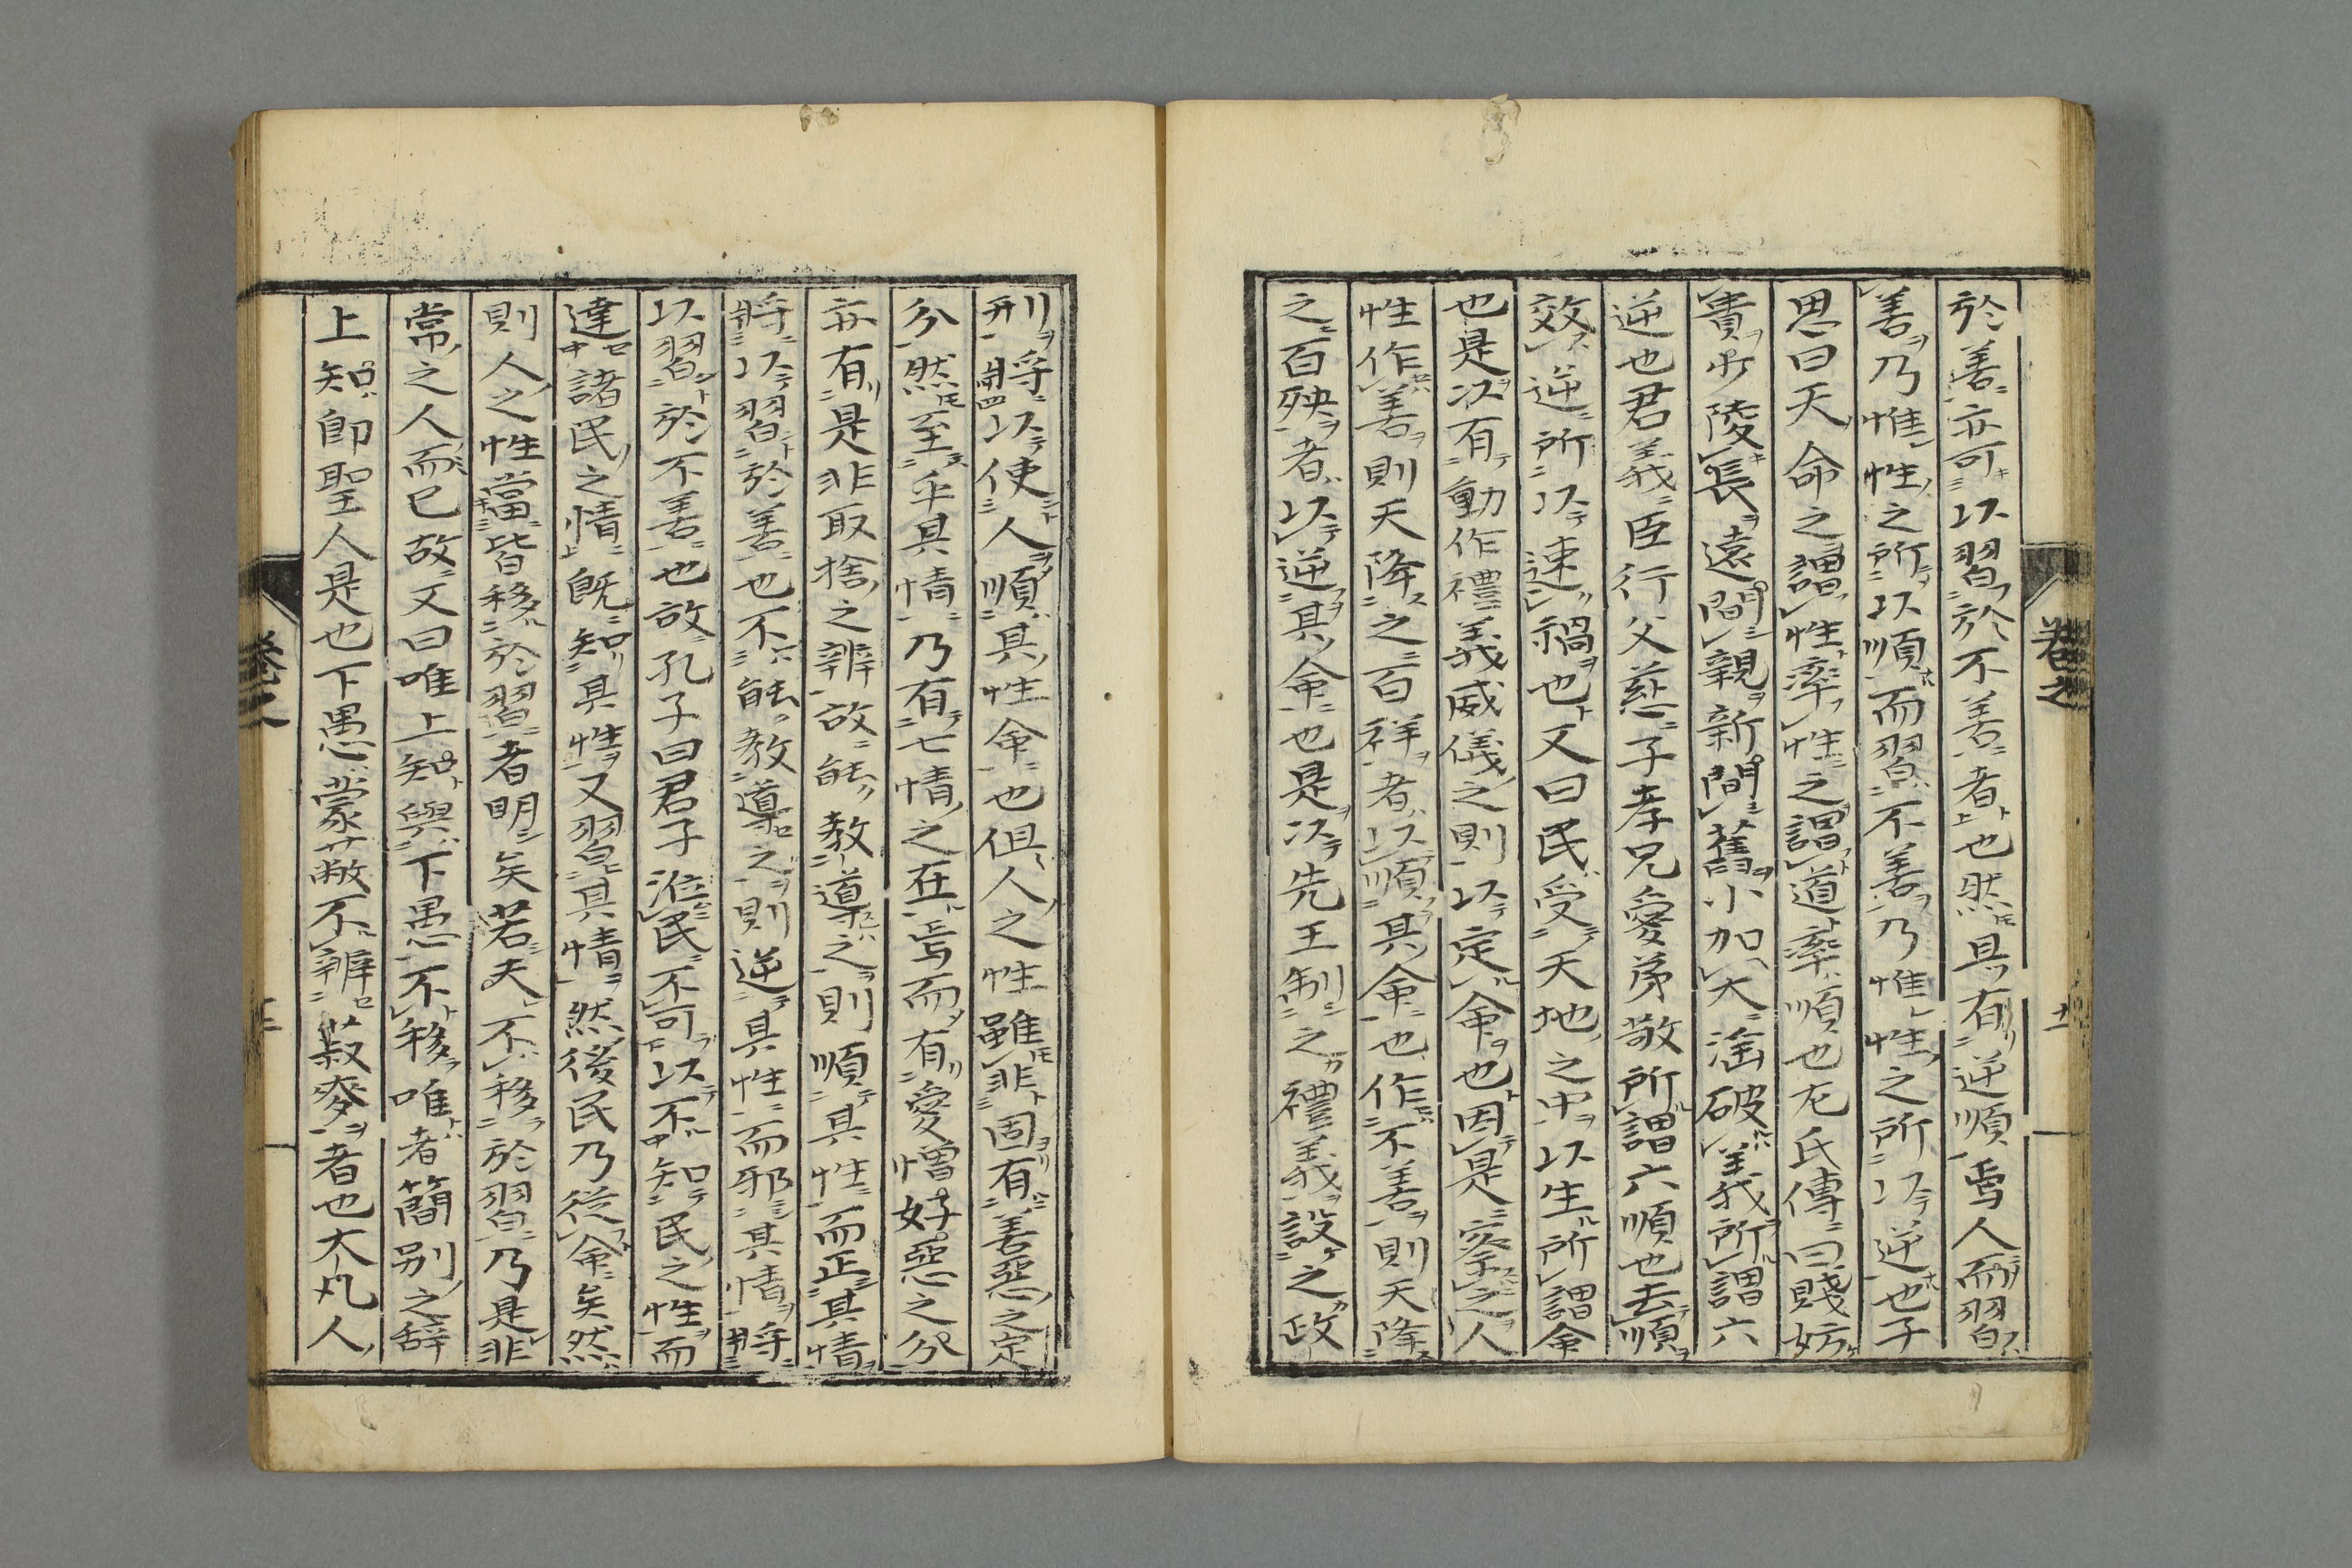 於善亦可以習於不善者也然具有逆順焉人而習
善乃惟性之所以順而習不善乃惟性之所以逆也子
思曰天命之謂性率性之謂道率順也左氏傳曰賤妨
貴少陵長遠間親新間舊小加大淫破義所謂六
逆也君義臣行父慈子孝兄愛弟敬所謂六順也去順
效逆所以速禍也又曰民受天地之中以生所謂命
也是以有動作禮義威儀之則以定命也因是察之人
性作善則天降之百祥者以順其命也作不善則天降
之百殃者以逆其命也是以先王制之禮義設之政
刑將以使人順其性命也但人之性雖非固有善惡之定
分然至乎其情乃有七情之在焉而有愛憎好惡之分
亦有是非取捨之辨故能教導之則順其性而正其情
將以習於善也不能教導之則逆其性而邪其情將
以習於不善也故孔子曰君子涖民不可以不知民之性而
達諸民之情既知其性又習其情然後民乃從命矣然
則人之性當皆移於習者明矣若夫不移於習乃是非
常之人而已故又曰唯上知與下愚不移唯者簡別之辞
上知即聖人是也下愚蒙蔽不辨菽麥者也大凡人
卷之
十一
卷之